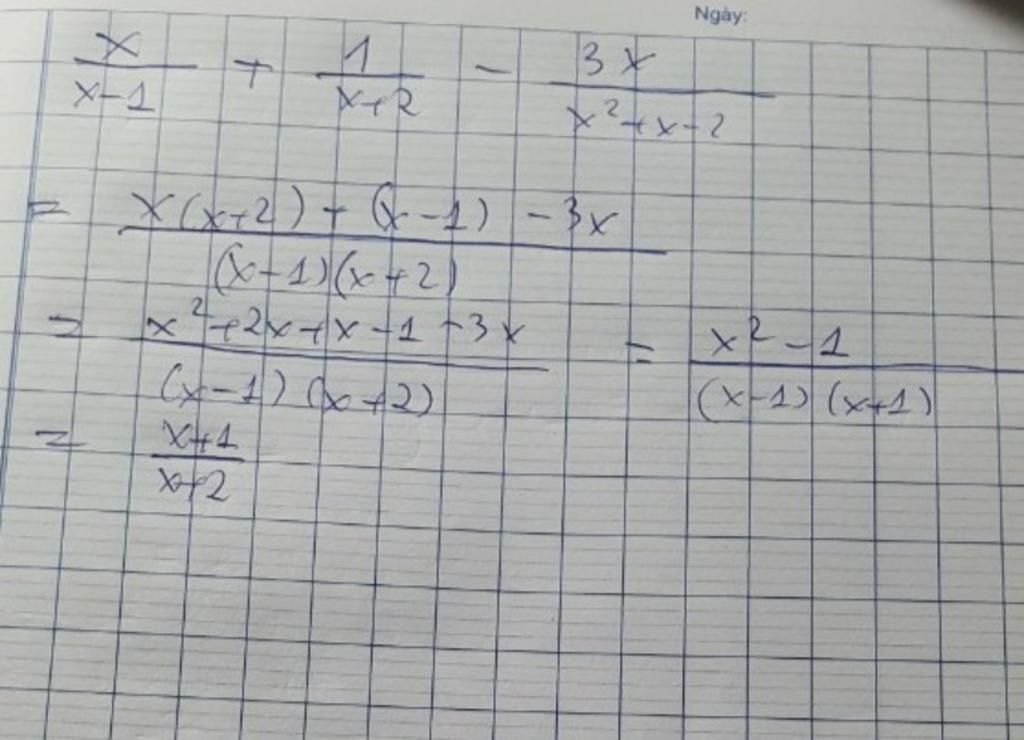 Ngày:
x/(x-1) + 1/(x+2) - 3x/(x²+x-2)
= (x(x+2) + (x-1) - 3x)/((x-1)(x+2))
= (x²+2x+x-1-3x)/((x-1)(x+2)) = (x²-1)/((x-1)(x+1))
= (x+1)/(x+2)